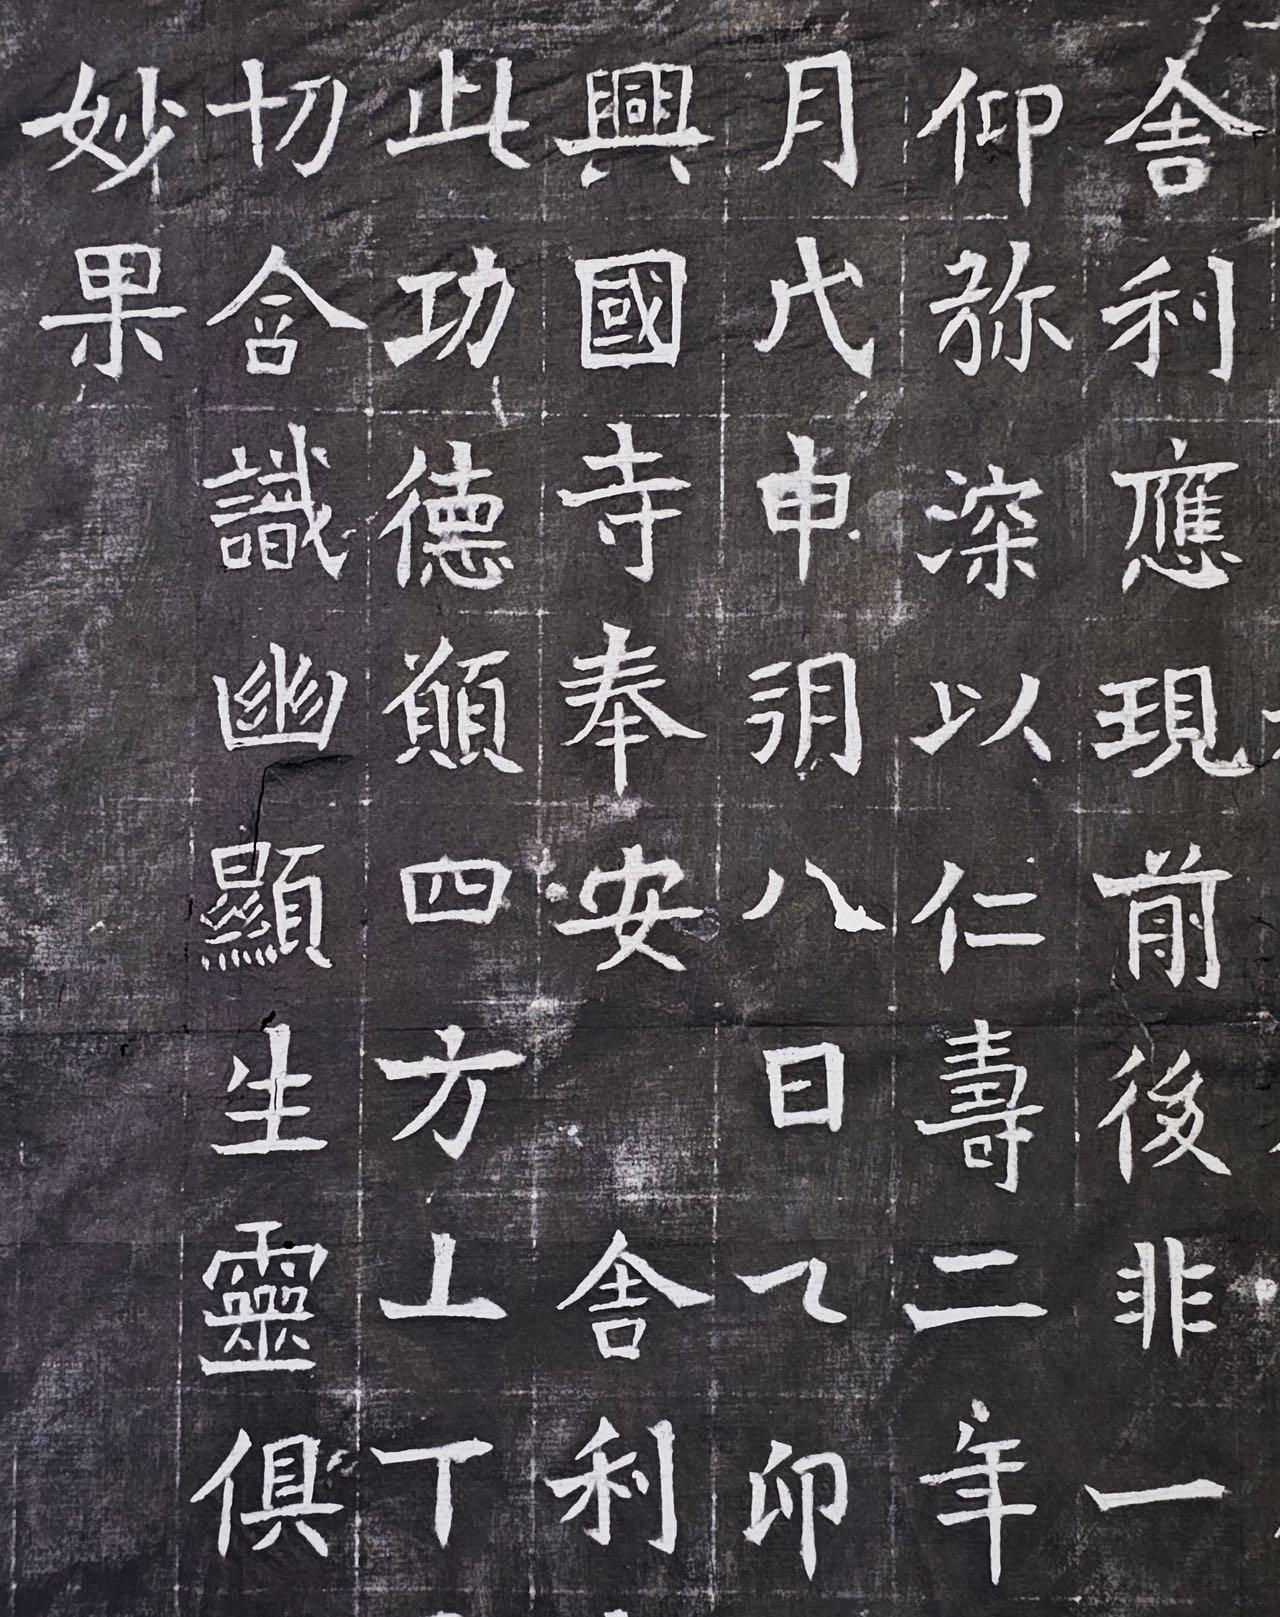 舍利應現前後非一
仰弥深以仁壽二年
月戊申朔八日乙卯
興國寺奉安舍利
此功德願四方上下
切含識幽顯生靈俱
妙果